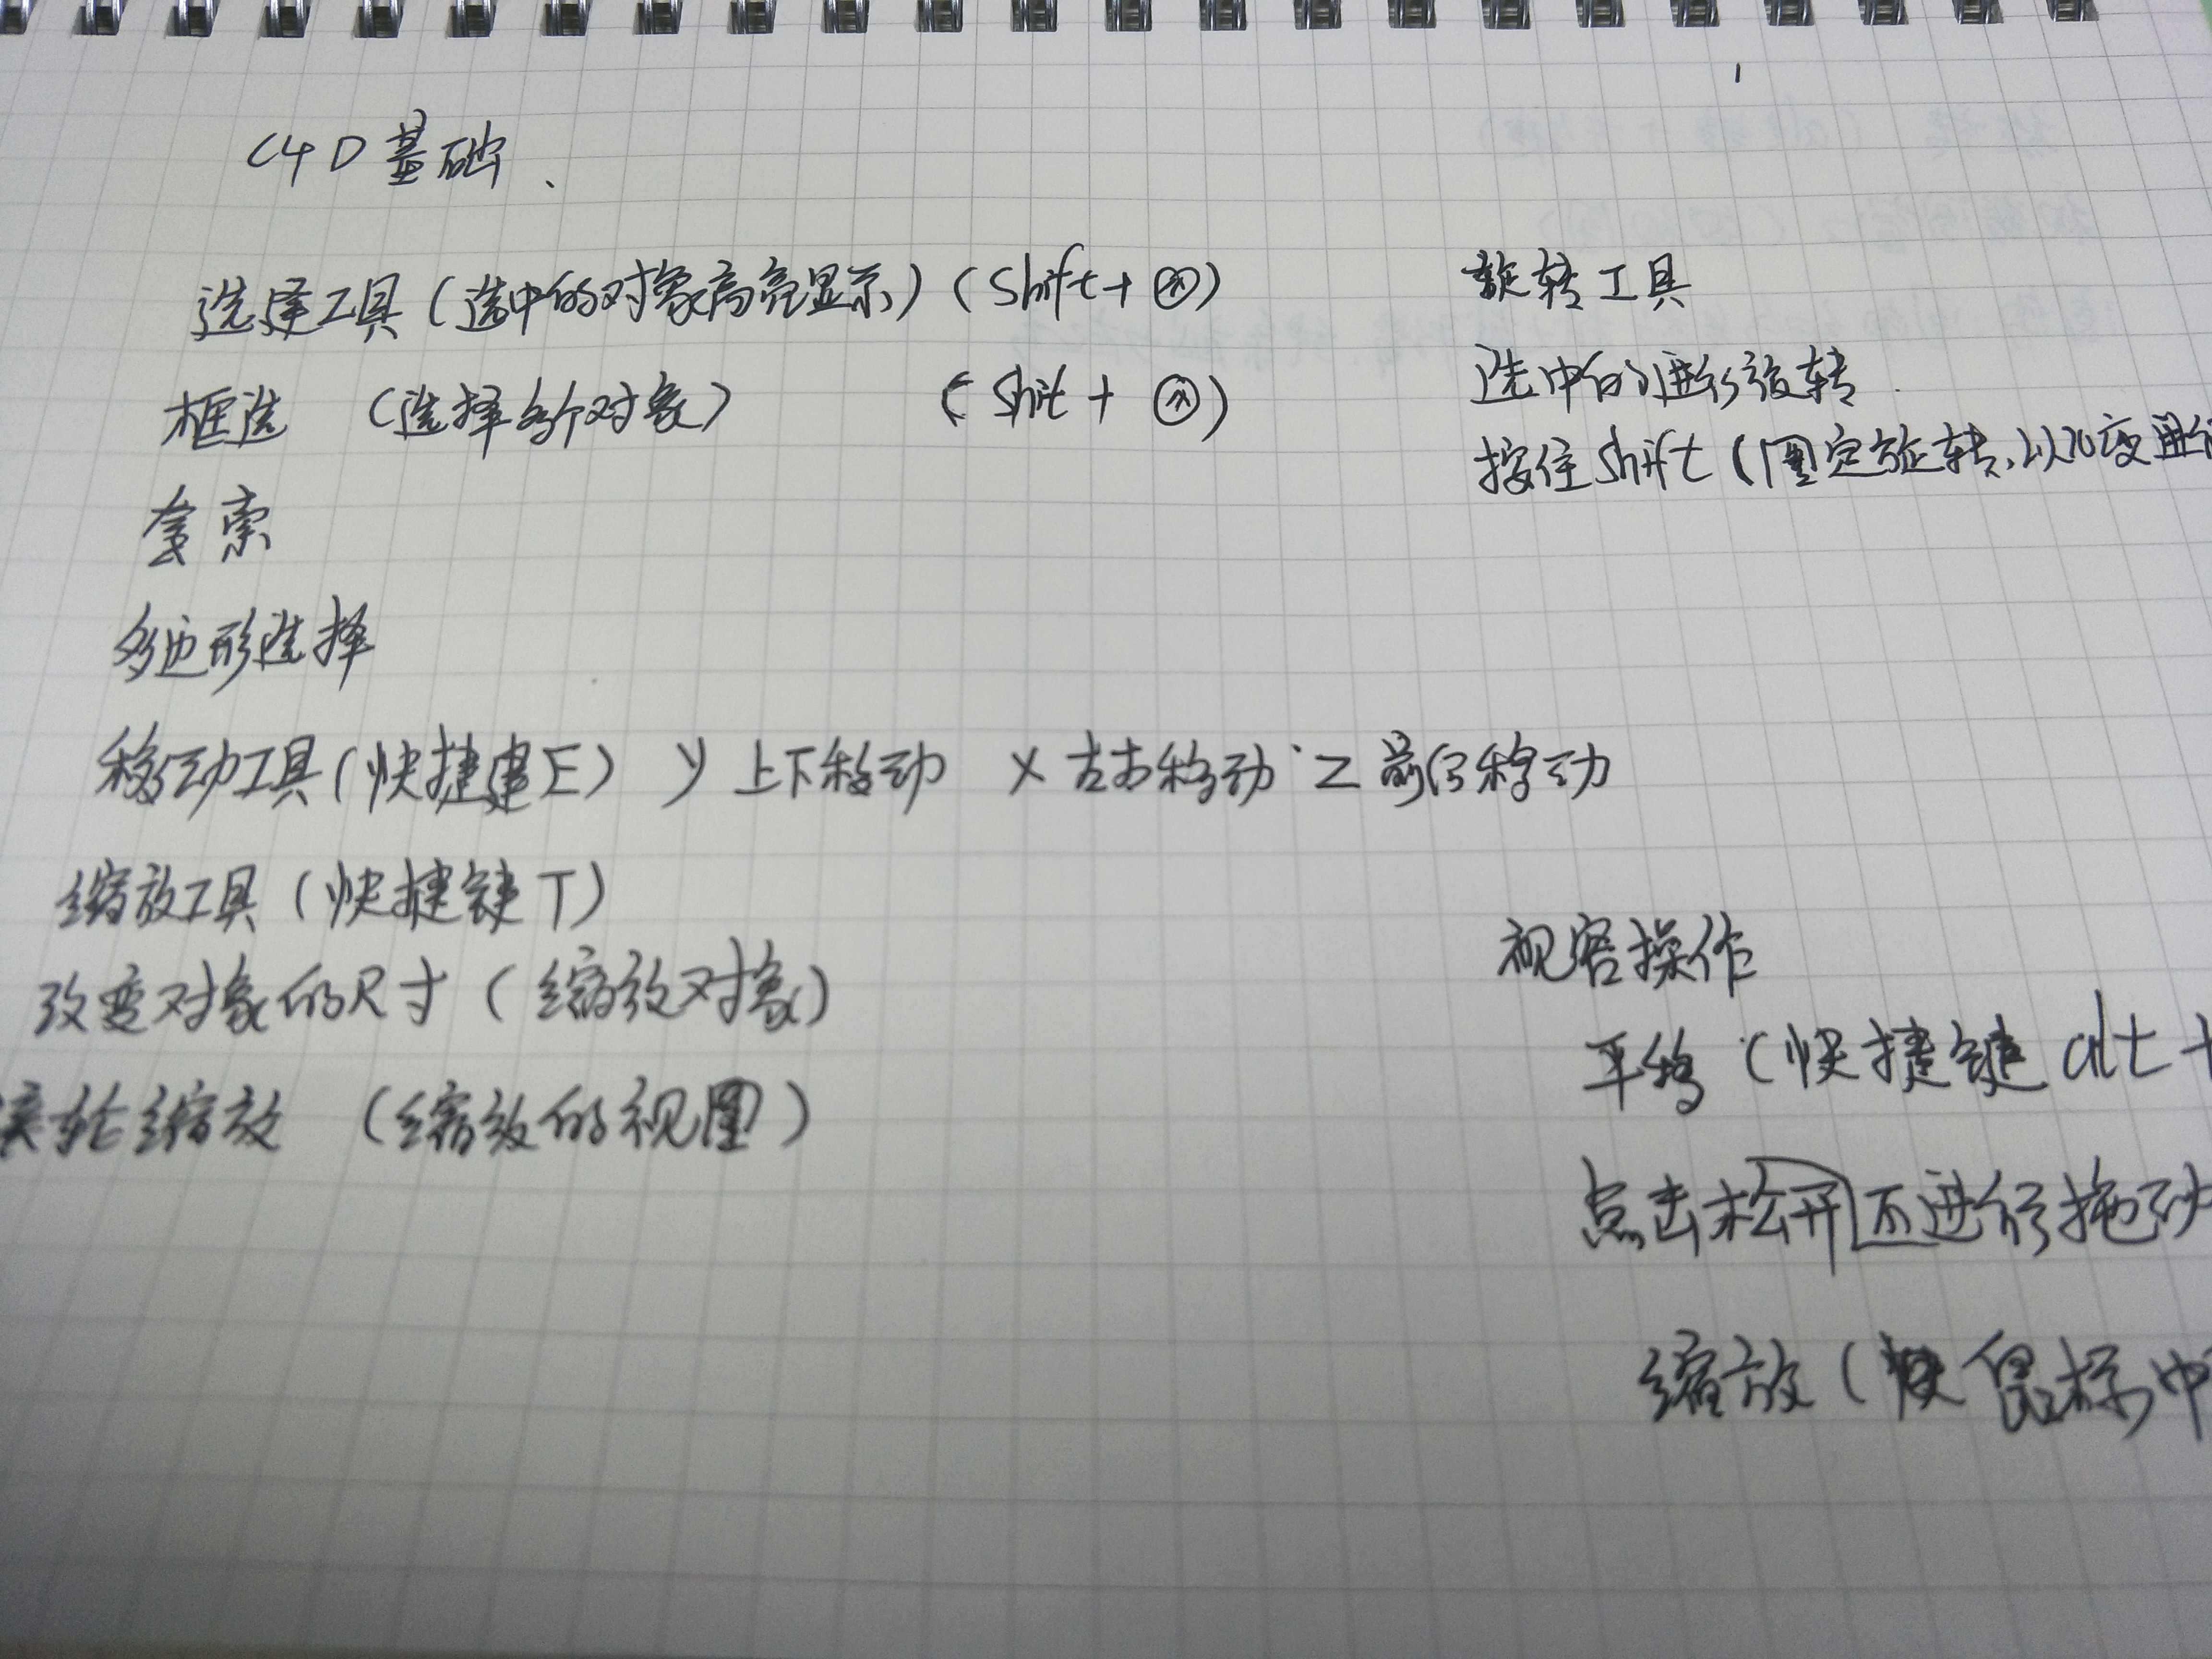 C4D基础、
选择工具(选中的对象高亮显示)(Shift+
框选 (选择多个对象) (Shit +
套索
多边形选择
移动工具(快捷建E) y 上下移动 x 左右移动 Z 前后移动
缩放工具(快捷键T)
改变对象的尺寸(缩放对象)
轮缩放 (缩放的视图)
旋转工具
选中的进行旋转.
按住Shift(固定旋转,以10度进行
视窗操作
平移(快捷键 alt+
点击松开不进行拖动
缩放(鼠标中